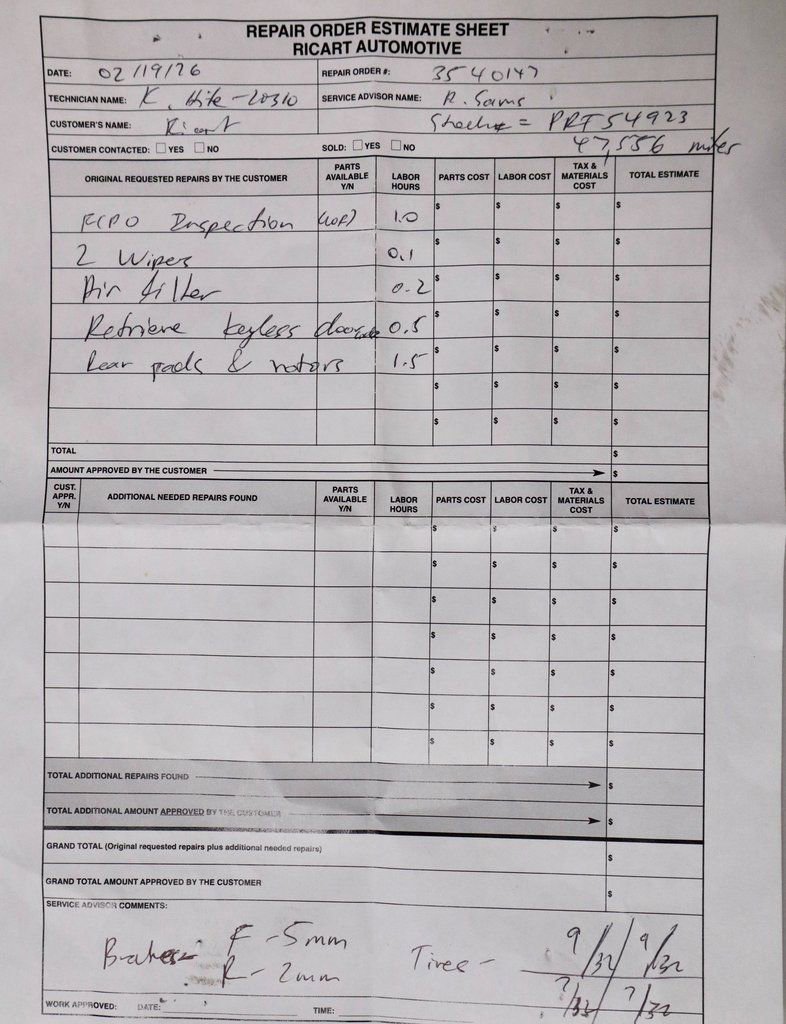 REPAIR ORDER ESTIMATE SHEET
RICART AUTOMOTIVE
DATE: 02/19/26 REPAIR ORDER #: 3540147
TECHNICIAN NAME: K. Hite-20310 SERVICE ADVISOR NAME: R. Sams
CUSTOMER'S NAME: Ricart Stock# = PRT54923
CUSTOMER CONTACTED: YES NO SOLD: YES NO 47,556 miles
ORIGINAL REQUESTED REPAIRS BY THE CUSTOMER PARTS AVAILABLE Y/N LABOR HOURS PARTS COST LABOR COST TAX & MATERIALS COST TOTAL ESTIMATE
Inspection (LOF) 1.0 $ $ $ $
2 Wipers 0.1 $ $ $ $
Air filter 0.2 $ $ $ $
Retrieve keyless door code 0.5 $ $ $ $
Rear pads & rotors 1.5 $ $ $ $
$ $ $ $
$ $ $ $
TOTAL $
AMOUNT APPROVED BY THE CUSTOMER $
CUST. APPR. Y/N ADDITIONAL NEEDED REPAIRS FOUND PARTS AVAILABLE Y/N LABOR HOURS PARTS COST LABOR COST TAX & MATERIALS COST TOTAL ESTIMATE
$ $ $ $
$ $ $ $
$ $ $ $
$ $ $ $
$ $ $ $
$ $ $ $
$ $ $ $
TOTAL ADDITIONAL REPAIRS FOUND $
TOTAL ADDITIONAL AMOUNT APPROVED BY THE CUSTOMER $
GRAND TOTAL (Original requested repairs plus additional needed repairs) $
GRAND TOTAL AMOUNT APPROVED BY THE CUSTOMER $
SERVICE ADVISOR COMMENTS:
Brakes- F -5mm Tires - 9/32 9/32
R- 2mm 7/32 7/32
WORK APPROVED: DATE: TIME: